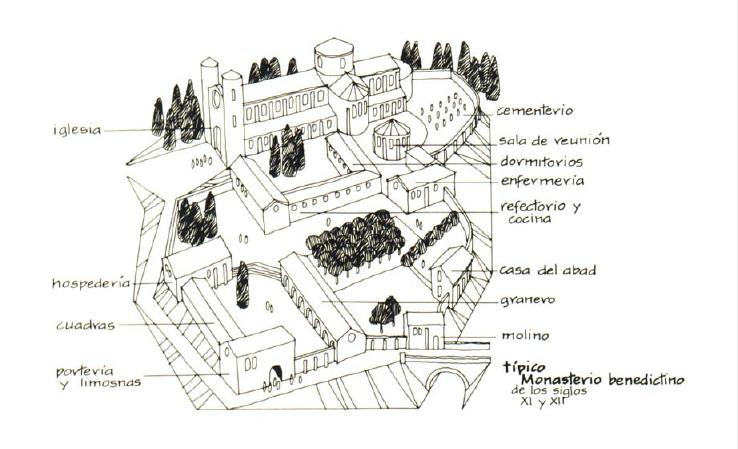 iglesia
hospedería
cuadras
portería
y limosnas
cementerio
sala de reunión
dormitorios
enfermería
refectorio y
cocina
casa del abad
granero
molino
típico
Monasterio benedictino
de los siglos
XI y XII